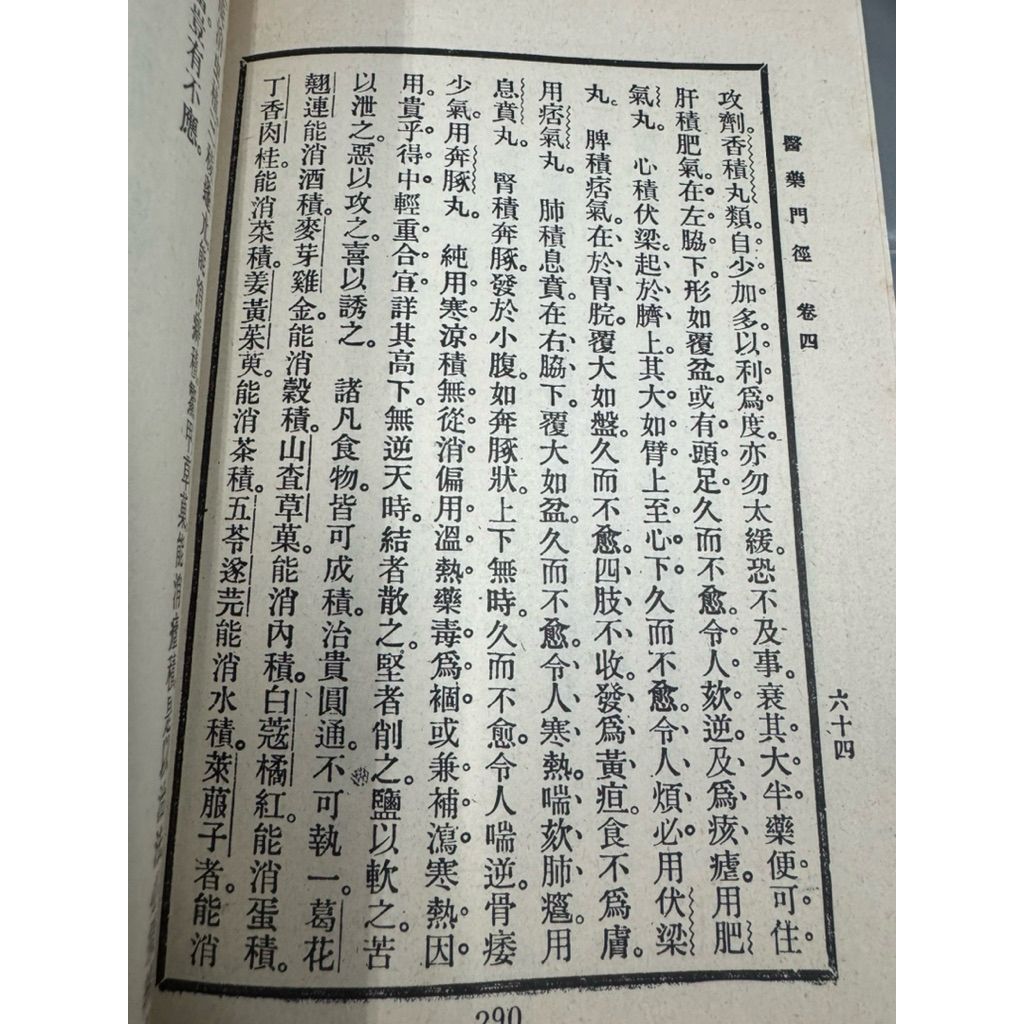 醫藥門徑 卷四
六十四
攻劑香積丸類。自少加多。以利爲度。亦勿太緩。恐不及事。衰其大半。藥便可住。
肝積肥氣。在左脇下。形如覆盆。或有頭足。久而不愈。令人欬逆。及爲痎瘧。用肥
氣丸。 心積伏梁。起於臍上。其大如臂。上至心下。久而不愈。令人煩必。用伏梁
丸。 脾積痞氣。在於胃脘。覆大如盤。久而不愈。四肢不收。發爲黃疸。食不爲膚。
用痞氣丸。 肺積息賁。在右脇下。覆大如盆。久而不愈。令人寒熱。喘欬肺癰。用
息賁丸。 腎積奔豚。發於小腹。如奔豚狀。上下無時。久而不愈。令人喘逆。骨痿
少氣。用奔豚丸。 純用寒涼。積無從消。偏用溫熱。藥毒爲裍。或兼補瀉。寒熱因
用。貴乎得中。輕重合宜。詳其高下。無逆天時。結者散之。堅者削之。鹽以軟之。苦
以泄之。惡以攻之。喜以誘之。 諸凡食物。皆可成積。治貴圓通。不可執一。葛花
翹連。能消酒積。麥芽雞金。能消穀積。山査草菓。能消內積。白蔻橘紅。能消蛋積。
丁香肉桂。能消菜積。姜黃茱萸。能消茶積。五苓遂芫。能消水積。萊菔子者。能消
豈有不應。
290